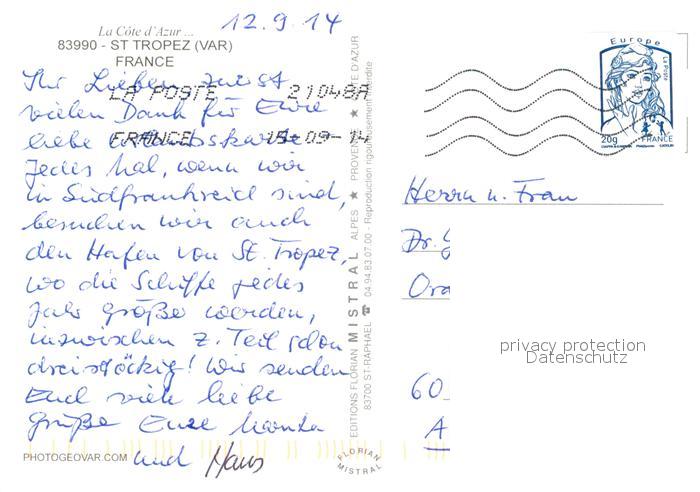 12.9.14
La Côte d'Azur ...
83990 - ST TROPEZ (VAR)
FRANCE
Ihr Lieben, zuerst
vielen Dank für Eure
liebe
Jedes Mal, wenn wir
in Südfrankreich sind,
besuchen wir auch
den Hafen von St. Tropez,
wo die Schiffe jedes
Jahr größer werden,
inzwischen z. Teil schon
dreistöckig! Wir senden
Euch viele liebe
Grüße Eure
und Hans
LA POSTE 21048A
FRANCE -09-14
PHOTOGEOVAR.COM
EDITIONS FLORIAN MISTRAL ALPES ★ PROVENCE ★ CÔTE D'AZUR
83700 ST-RAPHAEL ☎ 04.94.83.07.00 - Reproduction rigoureusement interdite
FLORIAN
MISTRAL
Europe
La Poste
20g
FRANCE
Herrn u. Frau
Dr.
60
A
privacy protection
Datenschutz